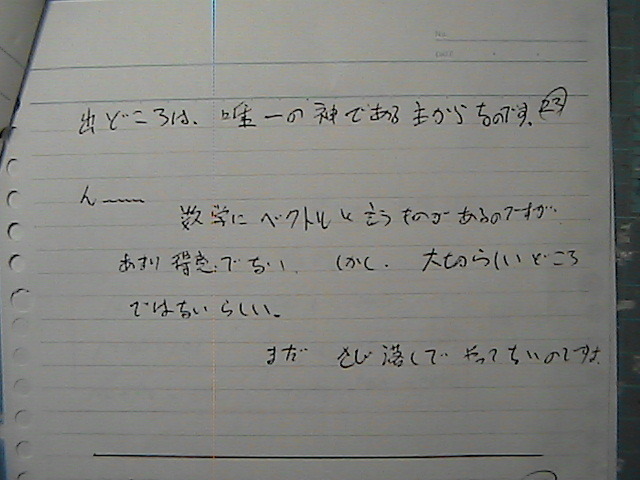 No.
DATE
出どころは、唯一の神である主からなのです。
ん〜〜
数学にベクトルと言うものがあるのですが、
あまり得意でない。しかし、大切らしいどころ
ではないらしい。
まだ さび落しで やってないのですよ